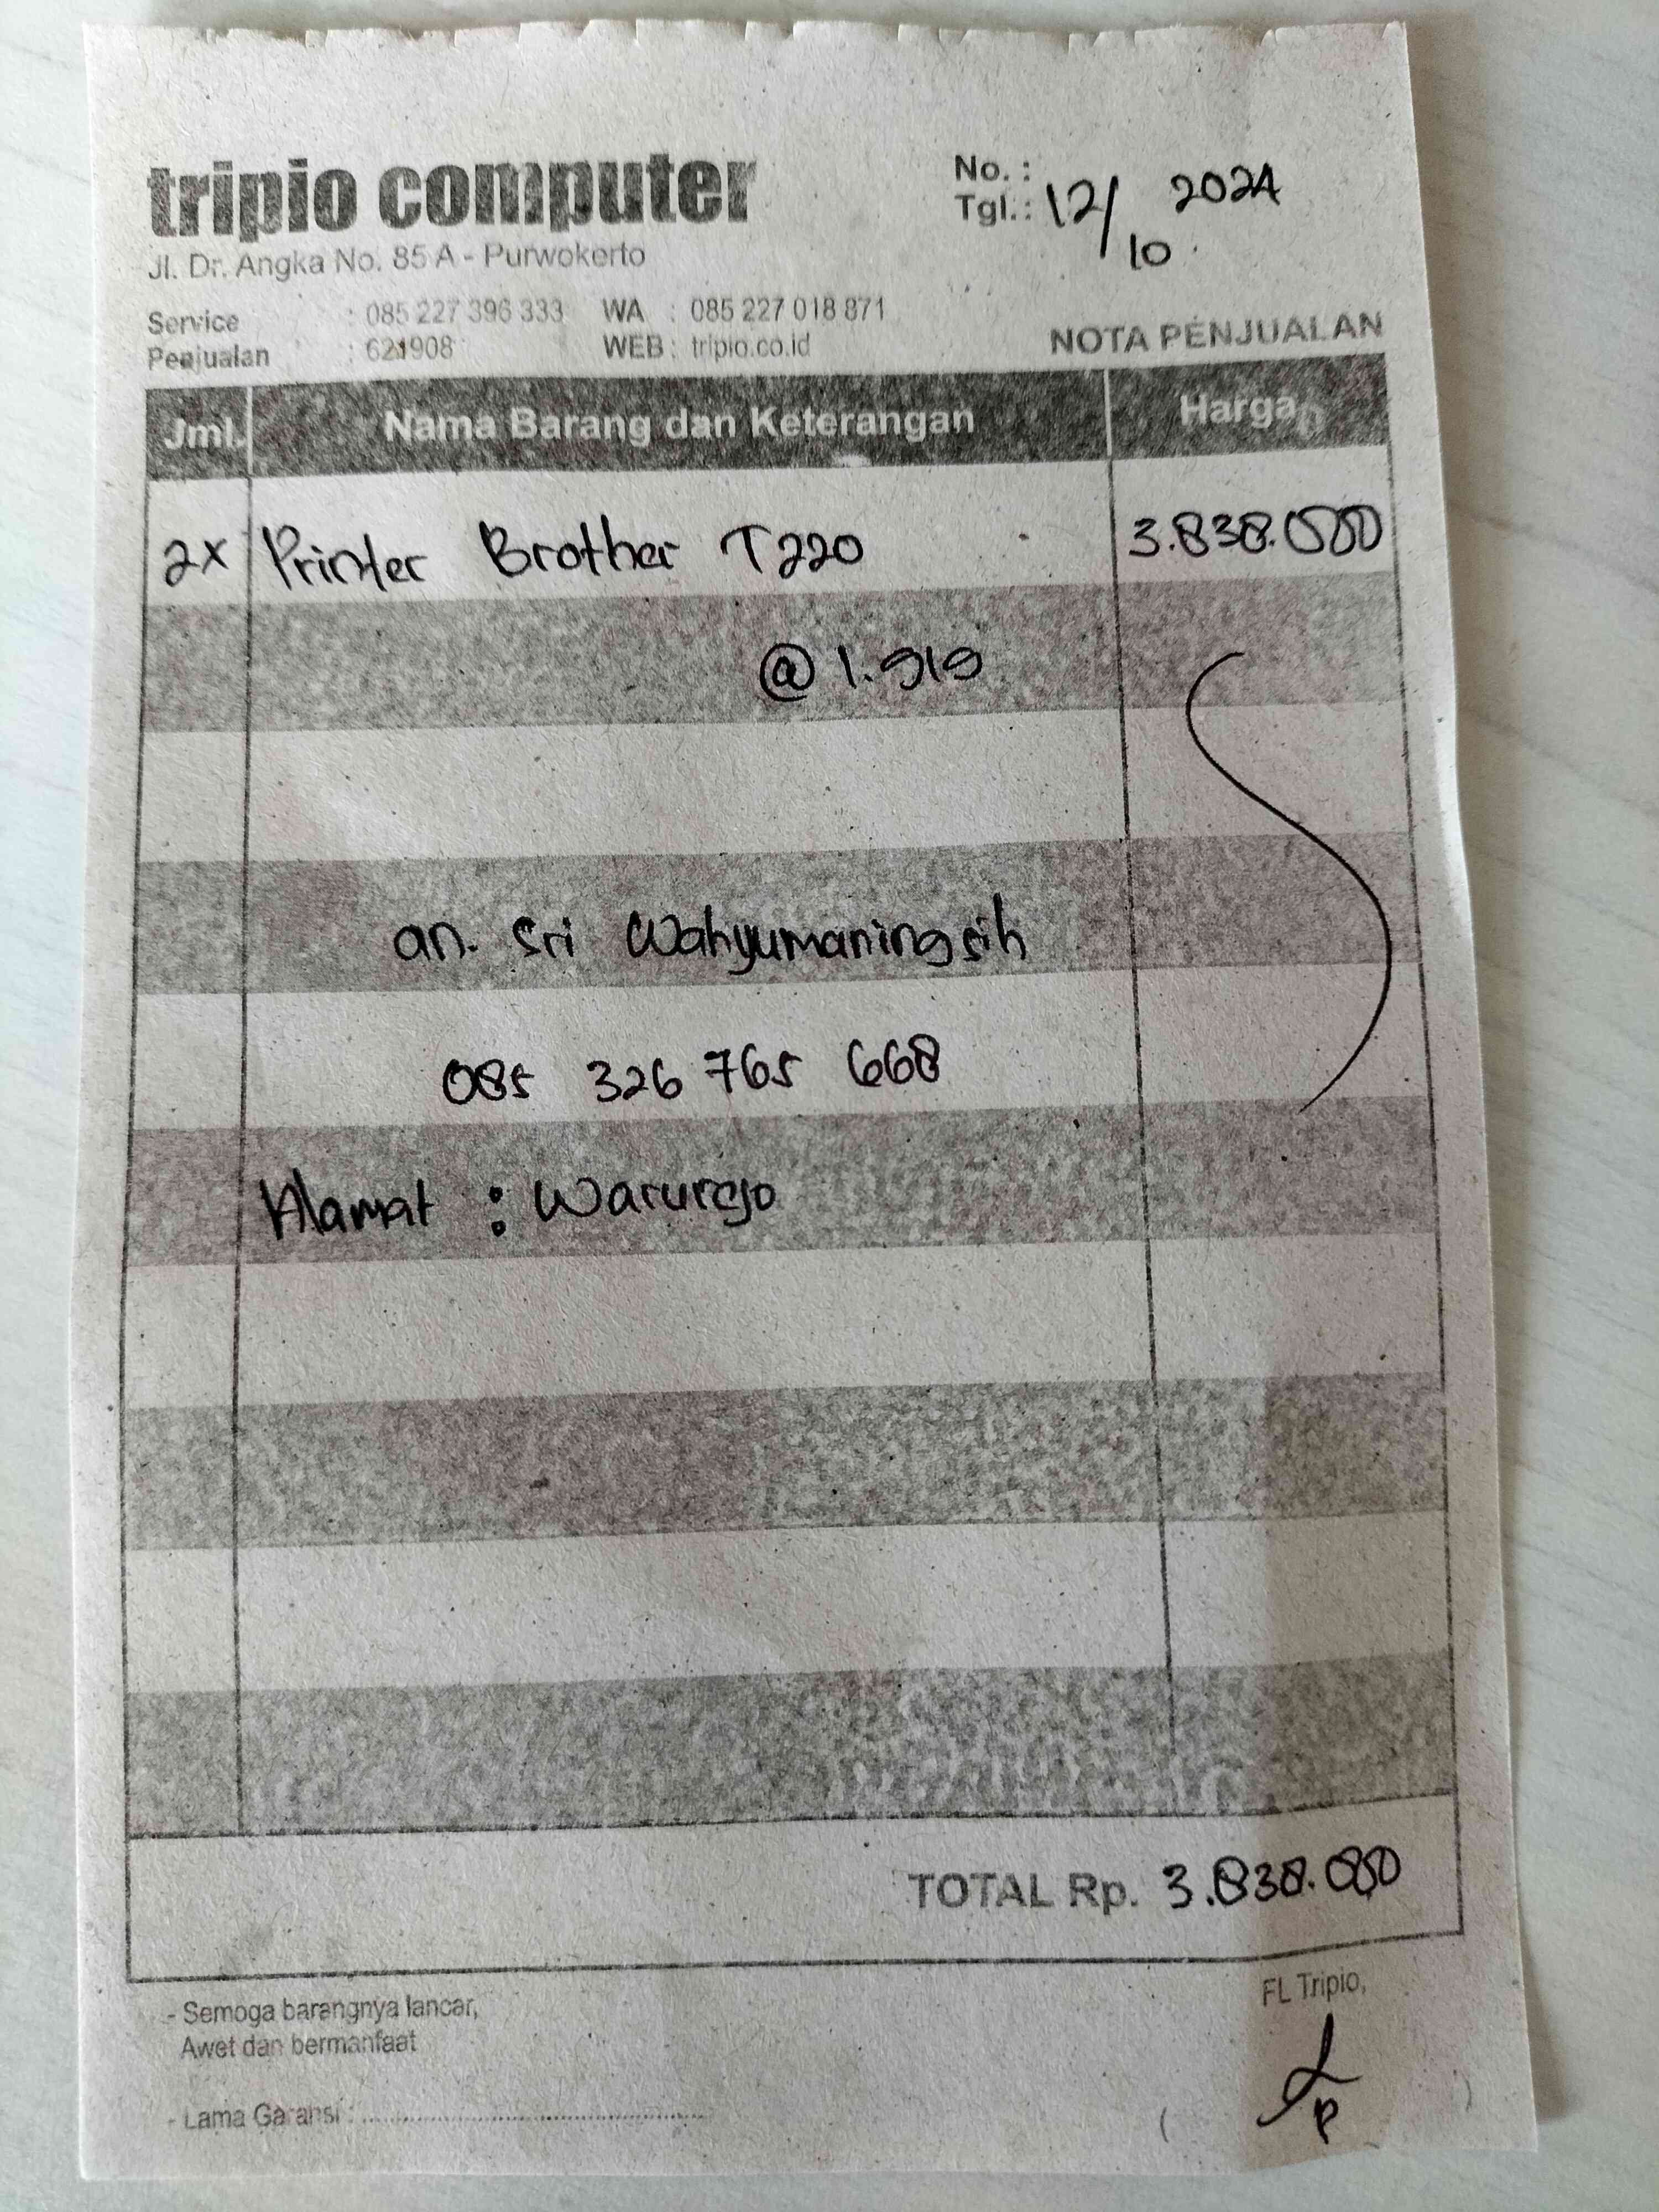 tripio computer
Jl. Dr. Angka No. 85 A - Purwokerto
No. :
Tgl.: 12/10 2024
Service : 085 227 396 333 WA : 085 227 018 871
Penjualan : 621908 WEB : tripio.co.id
NOTA PENJUALAN
Jml. Nama Barang dan Keterangan Harga
2x Printer Brother T220 3.838.000
@ 1.919
an. Sri Wahyumaningsih
085 326 765 668
Alamat : Warurejo
TOTAL Rp. 3.838.000
- Semoga barangnya lancar,
Awet dan bermanfaat
FL Tripio,
- Lama Garansi : ........................................
( )